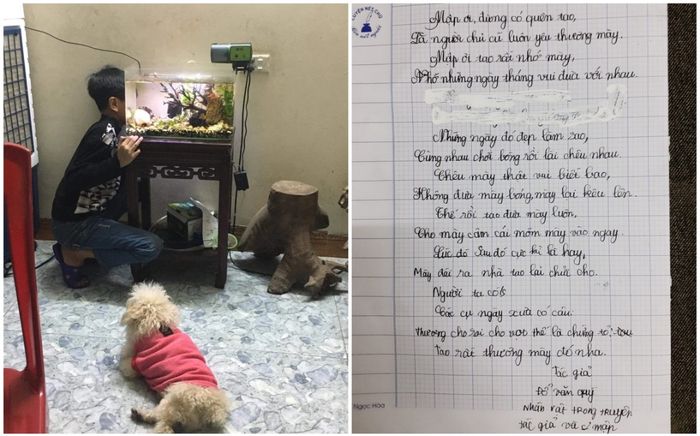 LUYỆN NÉT CHỮ
Mập ơi, đừng có quên tao,
Là người chủ cũ luôn yêu thương mày.
Mập ơi tao rất nhớ mày,
Nhớ những ngày tháng vui đùa với nhau.
Những ngày đó đẹp làm sao,
Cùng nhau chơi bóng rồi lại chêu nhau.
Chêu mày thấy vui biết bao,
Không đưa mày bóng, mày lại kêu lên.
Thế rồi tao đưa mày luôn,
Cho mày cắm cái mồm mày vào ngay.
Lúc đó đó cực kì là hay,
Mày đái ra nhà tao lại chửi cho.
Người ta có
Các cụ ngày xưa có câu:
thương cho roi cho vọt thế là chứng tỏ
tao rất thương mày đó nha.
Tác giả
Đỗ văn quý
Nhân vật trong truyện
tác giả và mập
Ngọc Hòa